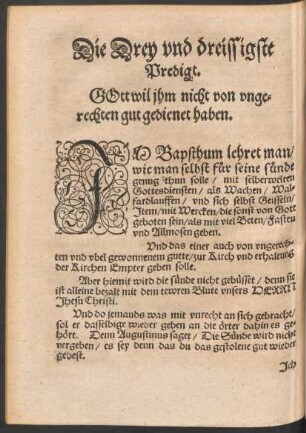 Die Drey vnd dreissigste
Predigt.
GOtt wil jhm nicht von vnge-
rechten gut gedienet haben.
IM Bapsthum lehret man/
wie man selbst für seine sünde
genug thun solle / mit selberweleten
Gottesdiensten / als Wachen / Wal-
fardlauffen / vnd sich selbst Geisseln/
Item/ mit Wercken/ die sonst von Gott
geboten sein/als mit viel Beten/ Fasten
vnd Allmosen geben.
Vnd das einer auch von vngerech-
ten vnd vbel gewonnenem gutte/zur Kirch vnd erhaltung
der Kirchen Empter geben solle.
Aber hiemit wird die sünde nicht gebüsset/ denn sie
ist alleine bezalt mit dem tewren Blute vnsers HERRN
Jhesu Christi.
Vnd do jemands was mit vnrecht an sich gebracht/
sol er dasselbige wieder geben an die örter dahin es ge-
hört. Denn Augustinus saget / Die Sünde wird nicht
vergeben/ es sey denn das du das gestolene gut wieder
gebest.
Ich